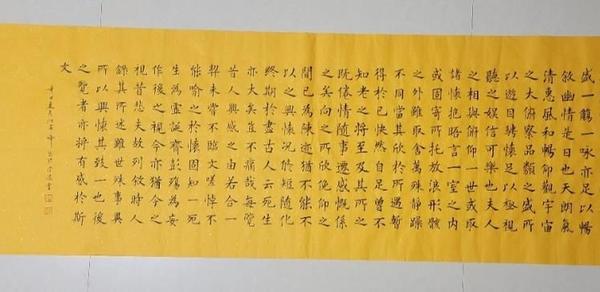 盛一觴一咏亦足以暢
敘幽情是日也天朗氣
清惠風和暢仰觀宇宙
之大俯察品類之盛所
以遊目騁懷足以極視
聽之娛信可樂也夫人
之相與俯仰一世或取
諸懷抱晤言一室之內
或因寄所托放浪形骸
之外雖取舍萬殊靜躁
不同當其欣於所遇暫
得於己快然自足曾不
知老之將至及其所之
既倦情隨事遷感慨係
之矣向之所欣俛仰之
間已為陳迹猶不能不
以之興懷況修短隨化
終期於盡古人云死生
亦大矣豈不痛哉每覽
昔人興感之由若合一
契未嘗不臨文嗟悼不
能喻之於懷固知一死
生為虛誕齊彭殤為妄
作後之視今亦猶今之
視昔悲夫故列敘時人
錄其所述雖世殊事異
所以興懷其致一也後
之覽者亦將有感於斯
文